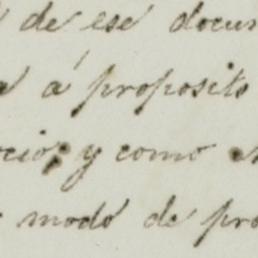 de ese docum
á proposito
ocio; y como
modo de pro